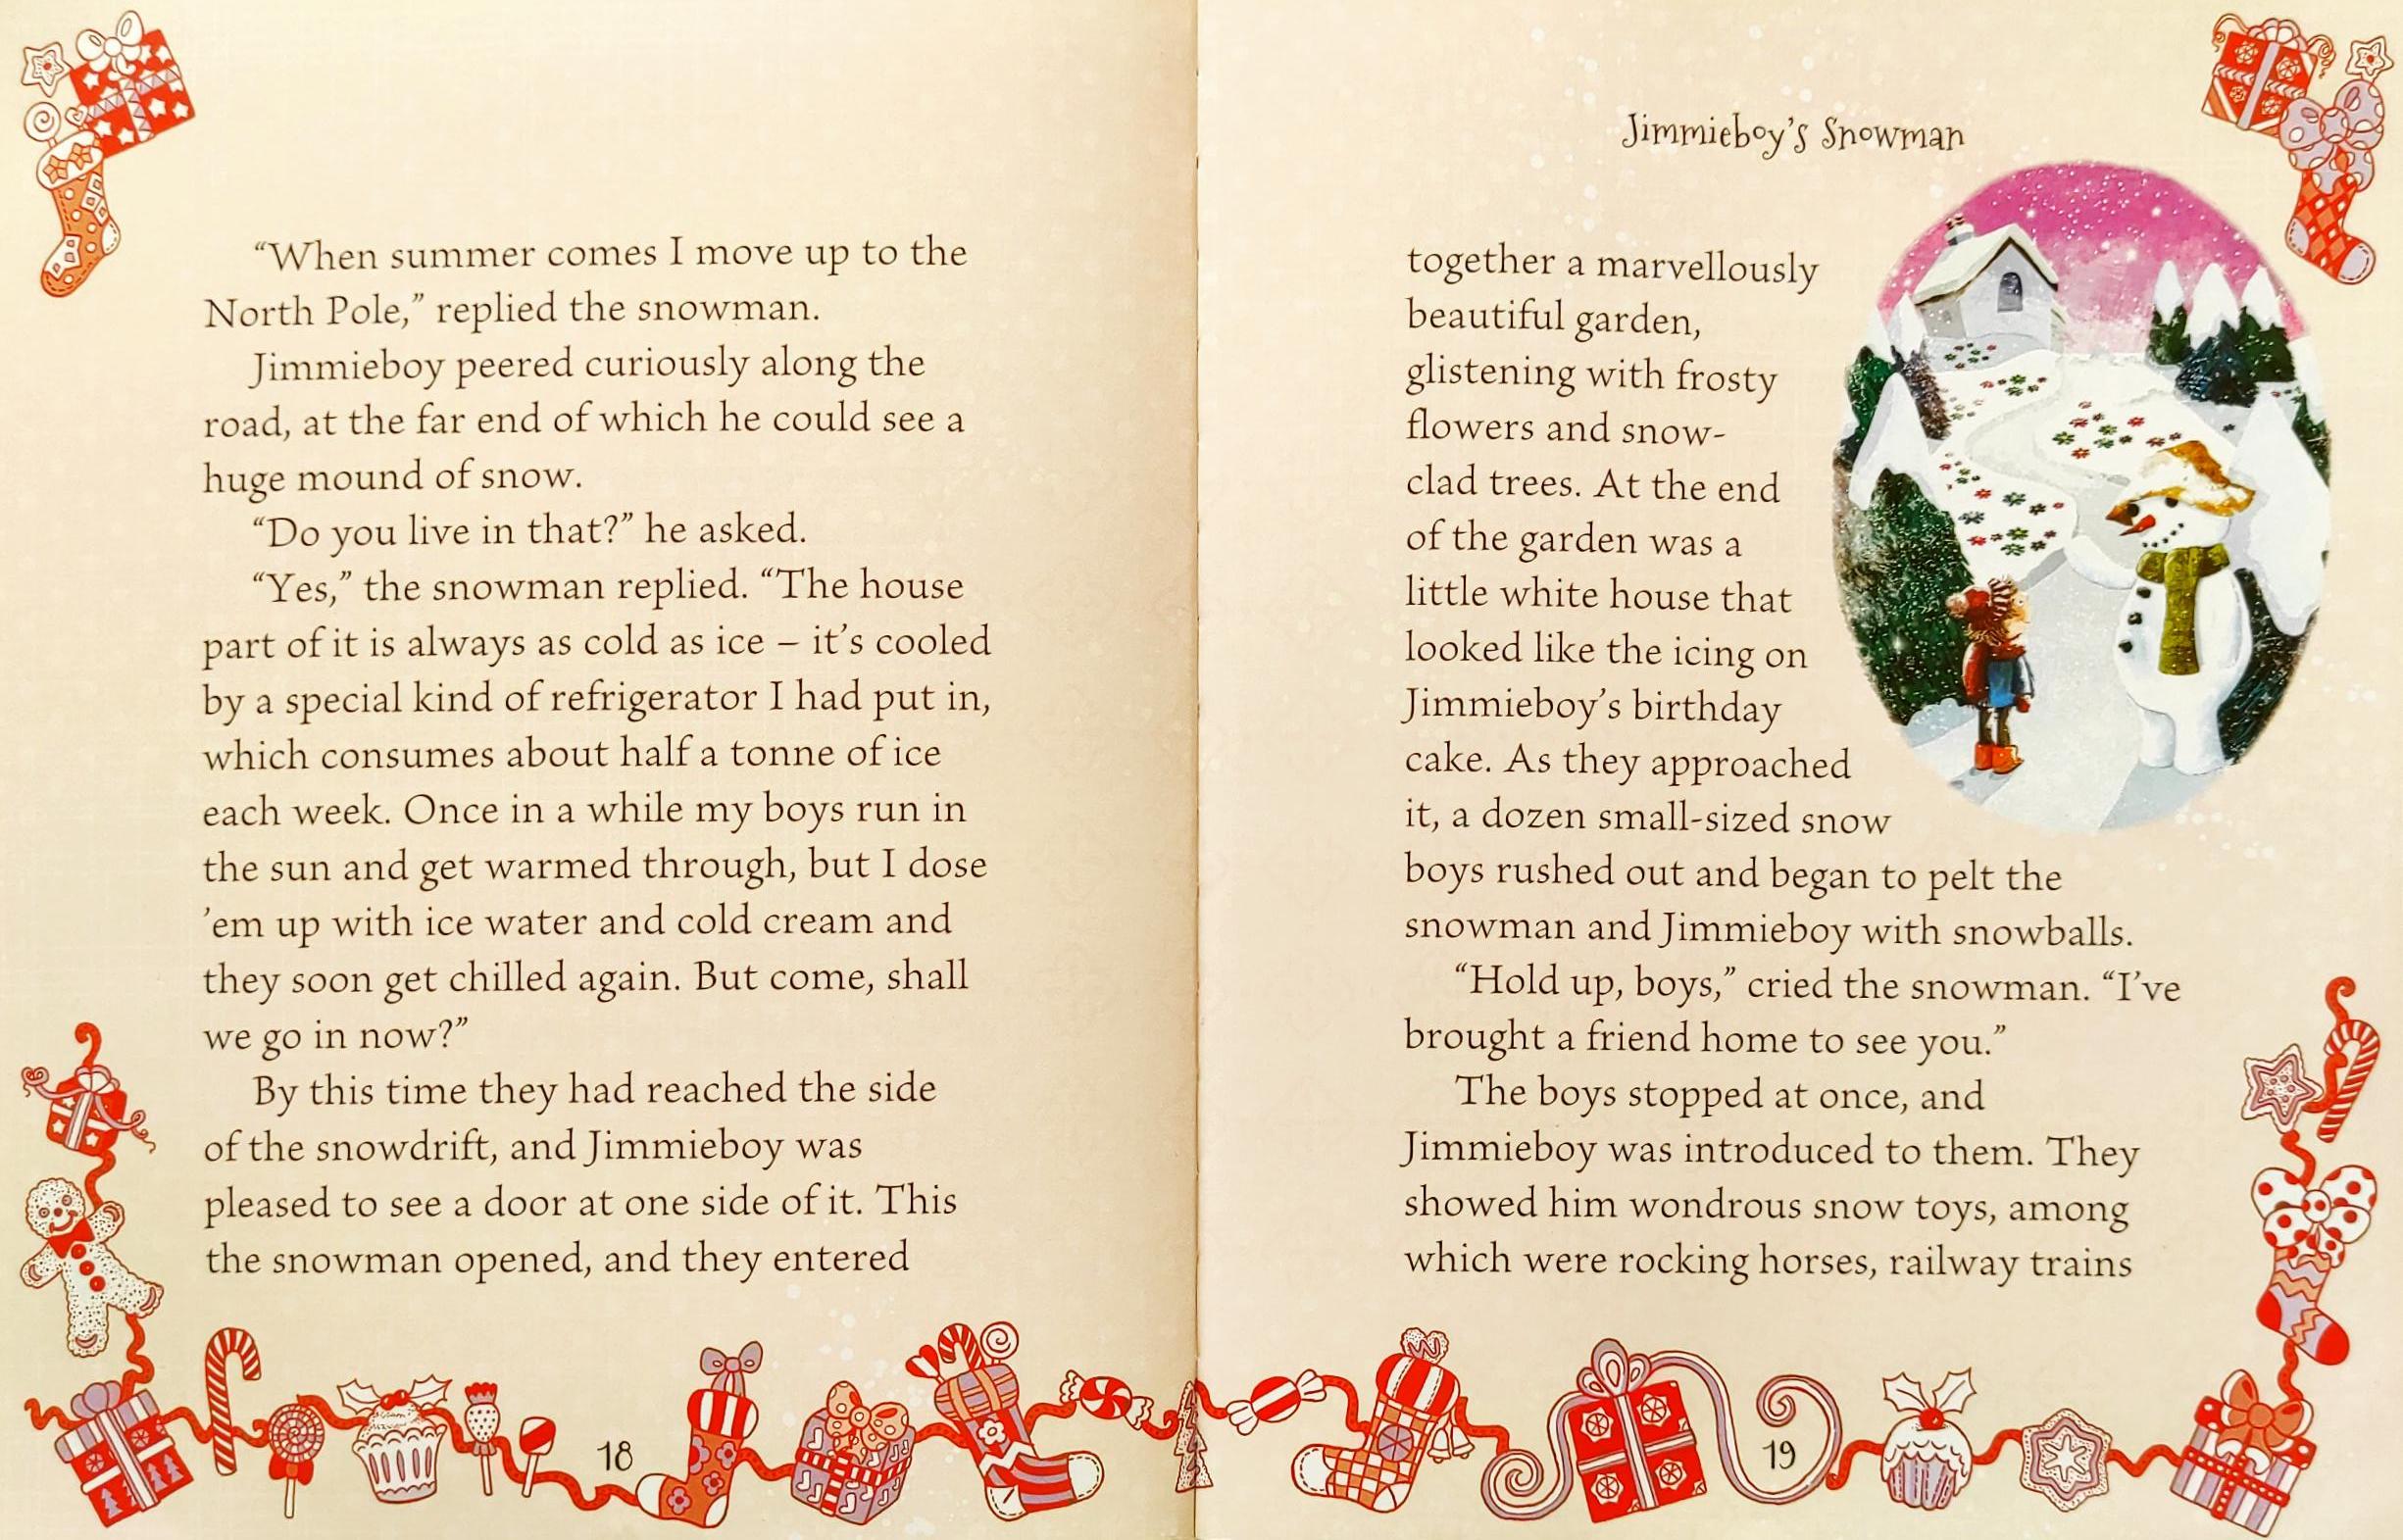 “When summer comes I move up to the
North Pole,” replied the snowman.
Jimmieboy peered curiously along the
road, at the far end of which he could see a
huge mound of snow.
“Do you live in that?” he asked.
“Yes,” the snowman replied. “The house
part of it is always as cold as ice – it’s cooled
by a special kind of refrigerator I had put in,
which consumes about half a tonne of ice
each week. Once in a while my boys run in
the sun and get warmed through, but I dose
’em up with ice water and cold cream and
they soon get chilled again. But come, shall
we go in now?”
By this time they had reached the side
of the snowdrift, and Jimmieboy was
pleased to see a door at one side of it. This
the snowman opened, and they entered
18
Jimmieboy’s Snowman
together a marvellously
beautiful garden,
glistening with frosty
flowers and snow-
clad trees. At the end
of the garden was a
little white house that
looked like the icing on
Jimmieboy’s birthday
cake. As they approached
it, a dozen small-sized snow
boys rushed out and began to pelt the
snowman and Jimmieboy with snowballs.
“Hold up, boys,” cried the snowman. “I’ve
brought a friend home to see you.”
The boys stopped at once, and
Jimmieboy was introduced to them. They
showed him wondrous snow toys, among
which were rocking horses, railway trains
19